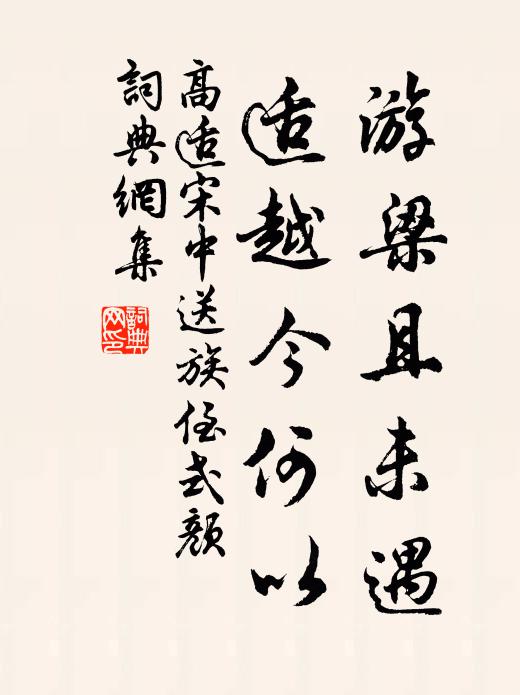 游梁且未遇
适越今何以
高适宋中送族侄式颜
詞典網集
詞典网印